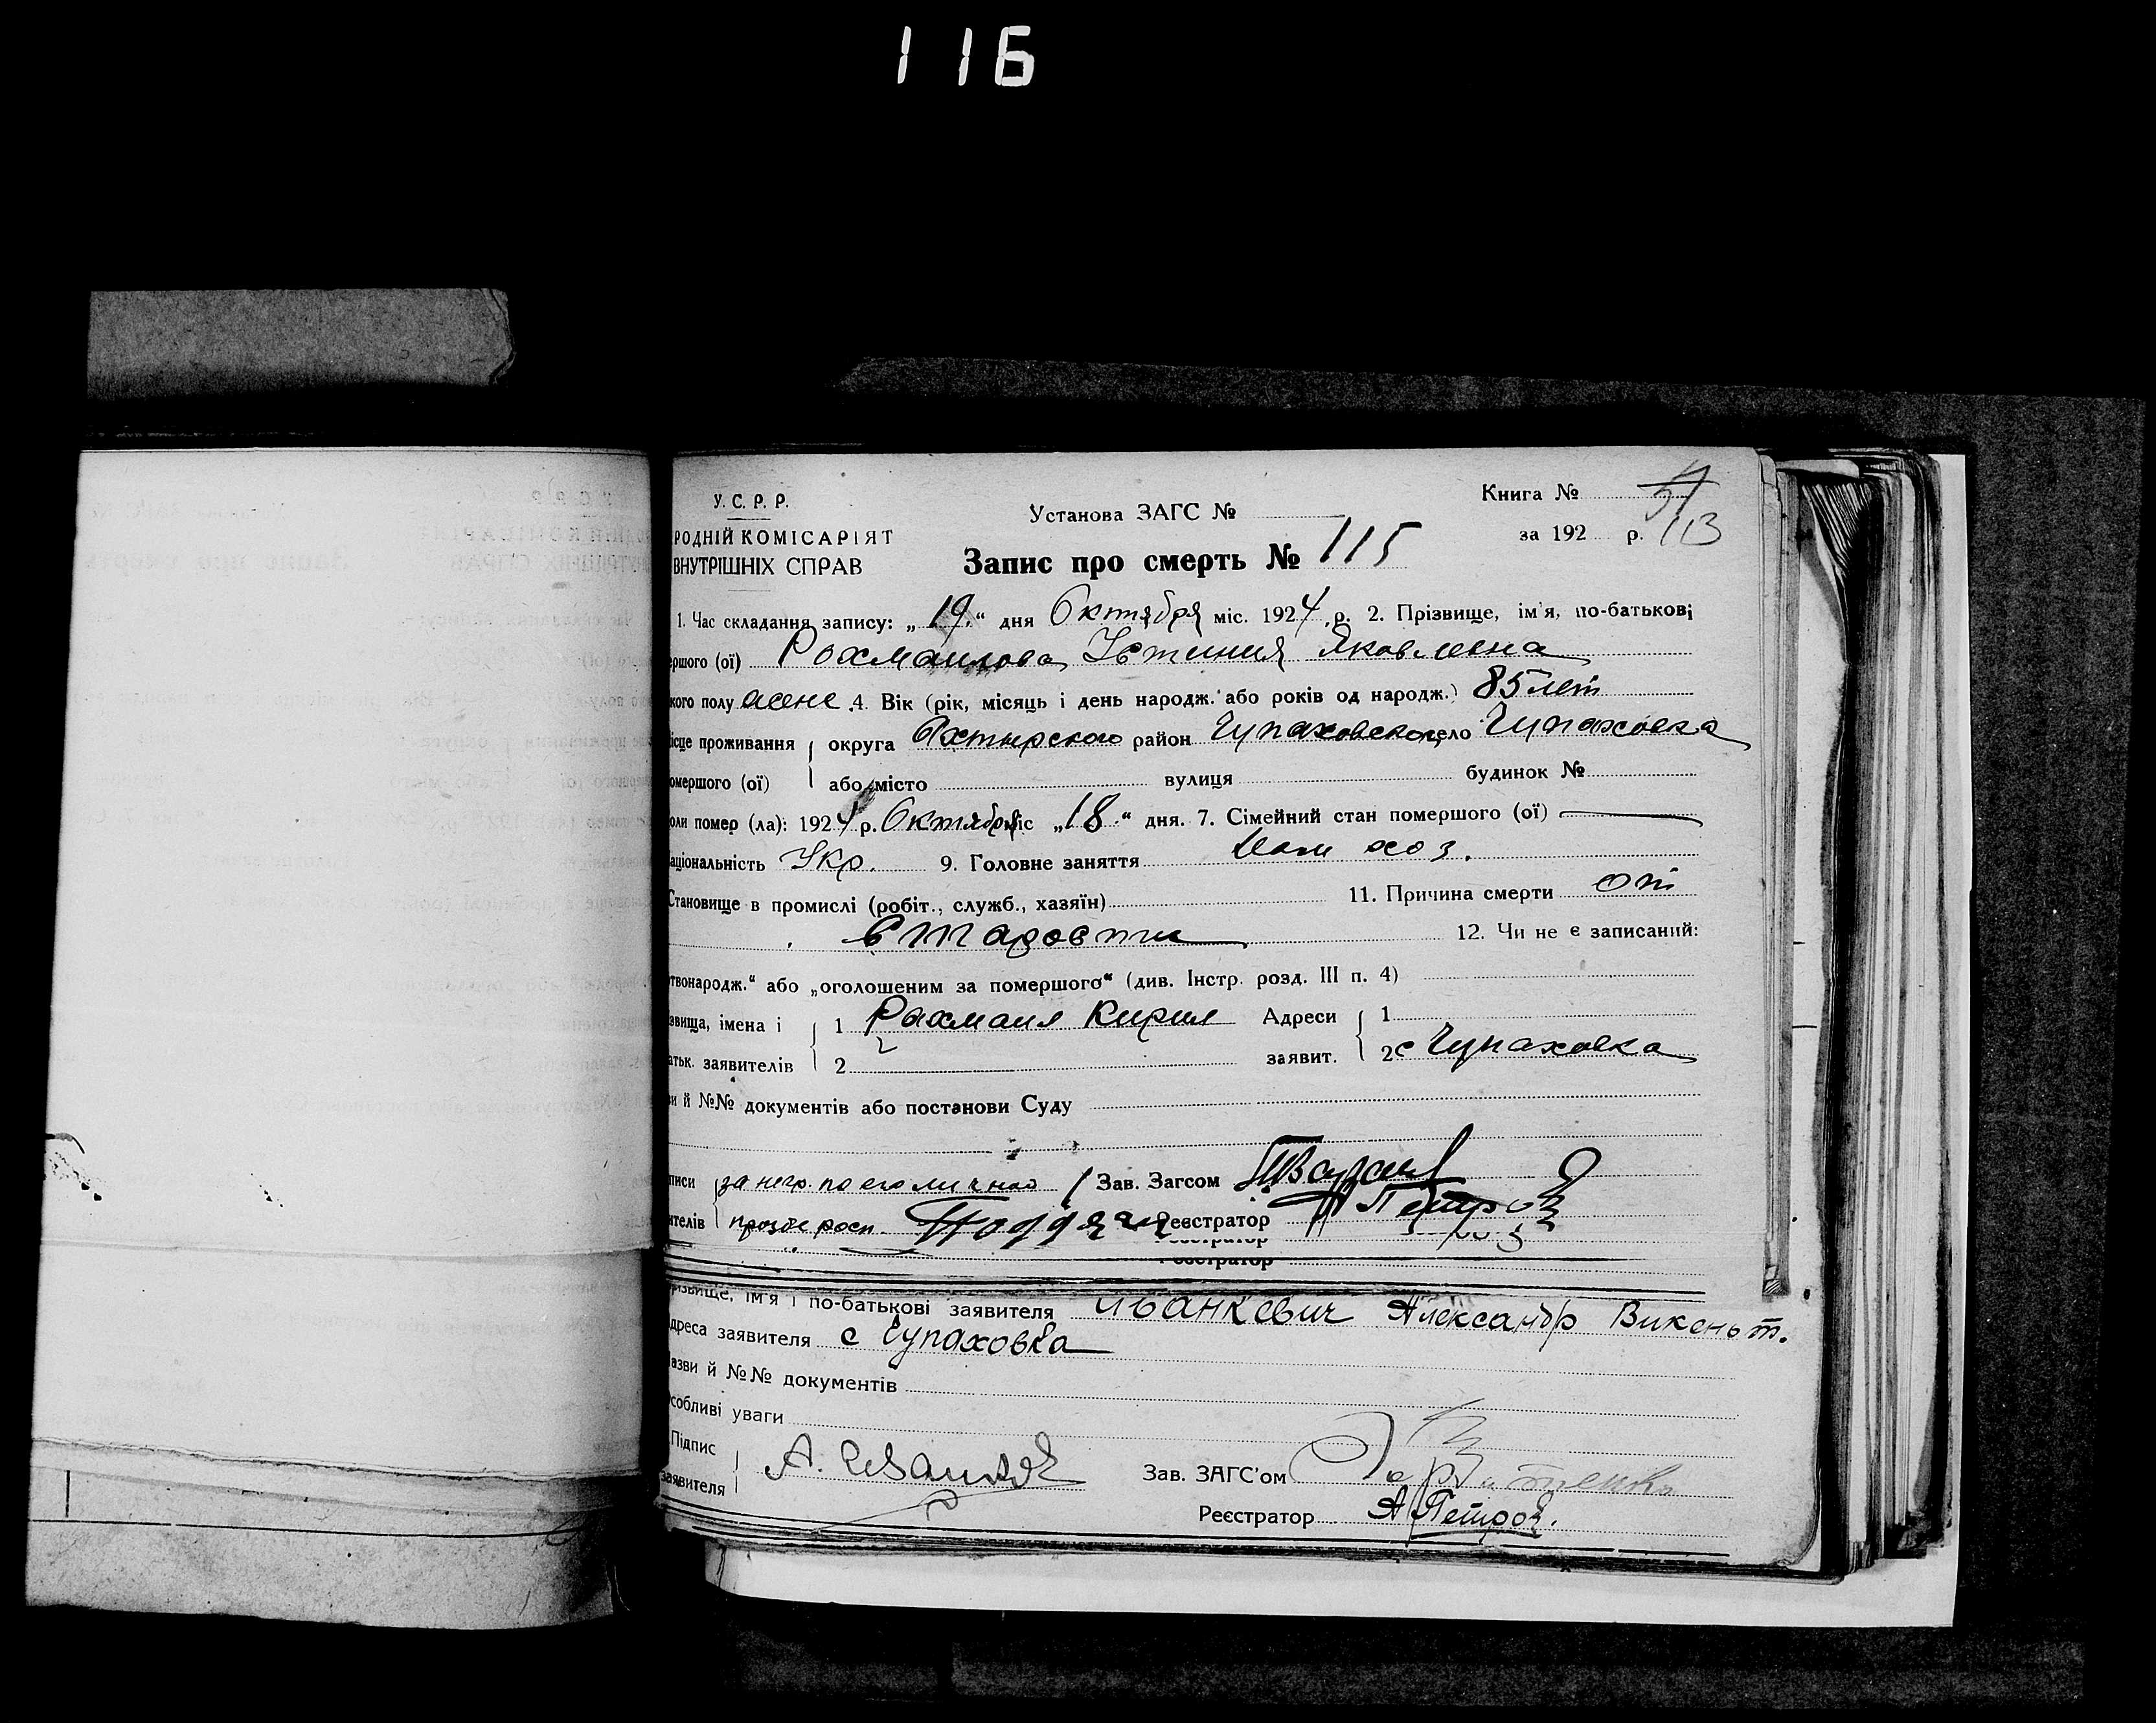 116
У. С. Р. Р.
РОДНІЙ КОМІСАРІЯТ
ВНУТРІШНІХ СПРАВ
Установа ЗАГС №
Книга №
за 192 р. 113
Запис про смерть № 115
1. Час складання запису: „19“ дня Октября міс. 1924 р. 2. Прізвище, ім'я, по-батькові
ершого (ої) Рохмаилова Устиния Яковлевна
кого полу жене 4. Вік (рік, місяць і день народж. або років од народж.) 85 лет
ісце проживання округа Ахтырского район Чупаховского село Чупаховка
омершого (ої) або місто вулиця будинок №
оли помер (ла): 1924 р. Октября міс „18“ дня. 7. Сімейний стан помершого (ої)
аціональність Укр. 9. Головне заняття хоз.
Становище в промислі (робіт., служб., хазяїн) 11. Причина смерти от
старости 12. Чи не є записаний:
твонародж.“ або „оголошеним за помершого“ (див. Інстр. розд. III п. 4)
звища, імена і 1 Рахмаил Кирил Адреси 1
атьк. заявителів 2 заявит. 2 с Чупаховка
ви й №№ документів або постанови Суду
писи за негр. по его личной Зав. Загсом
ителів прозбе росп. Реєстратор Петров
Реєстратор
різвище, ім'я і по-батькові заявителя Иванкевич Александр Викеньт.
дреса заявителя с Чупаховка
азви й №№ документів
собливі уваги
Підпис
заявителя А. Зав. ЗАГС'ом
Реєстратор А Петров.